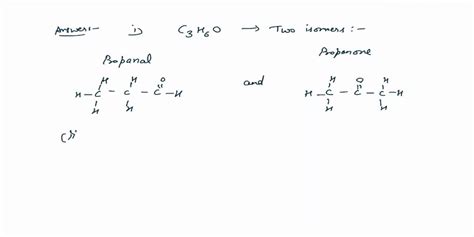 Answer:- i) C3H6O → Two isomers:-
Propanal and Propanone
H H O
H-C-C-C-H
H H
H O H
H-C-C-C-H
H H
(ii)